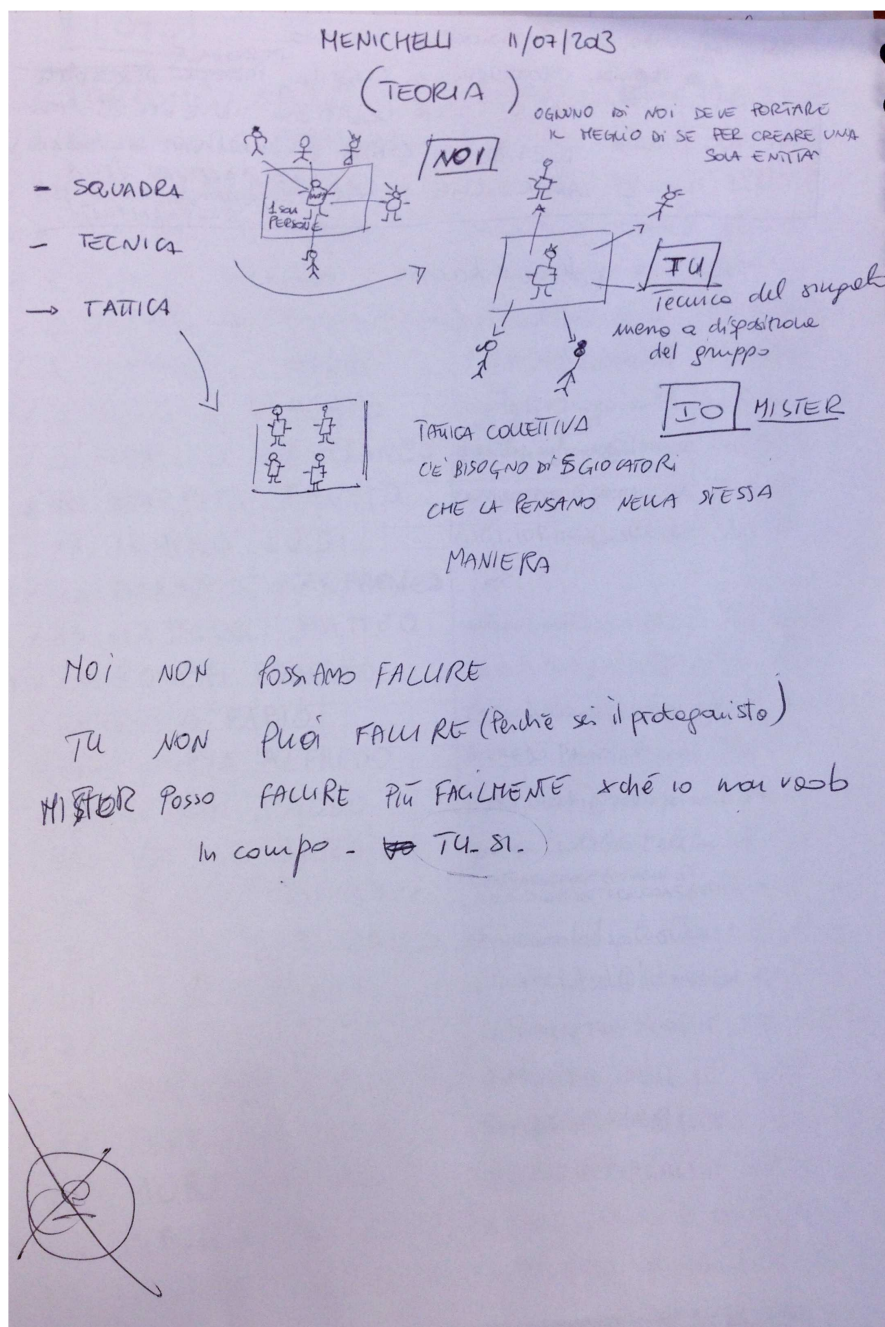 MENICHELLI 11/07/2013
(TEORIA)
OGNUNO DI NOI DEVE PORTARE
IL MEGLIO DI SE PER CREARE UNA
SOLA ENTITA'
NOI
- SQUADRA
1 SOLA
PERSONE
- TECNICA
→ TATTICA
TU
Tecnica del singolo
meno a disposizione
del gruppo
IO MISTER
TATTICA COLLETTIVA
C'E' BISOGNO DI 5 GIOCATORI
CHE LA PENSANO NELLA STESSA
MANIERA
NOI NON POSSIAMO FALLIRE
TU NON PUOI FALLIRE (Perchè sei il protagonista)
MISTER POSSO FALLIRE PIÙ FACILMENTE xché io non vado
In campo - TU - SI -